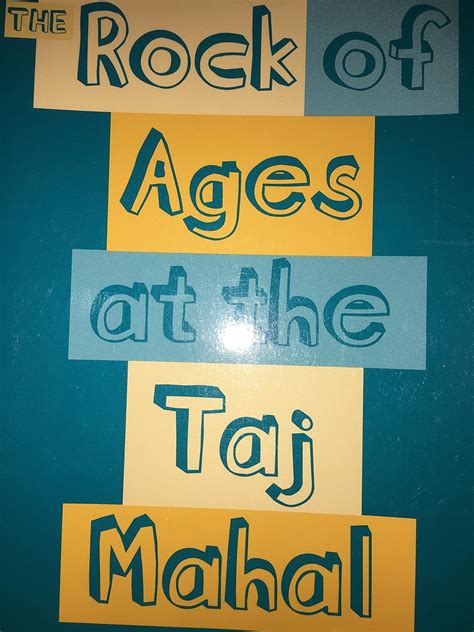 THE Rock of
Ages
at the
Taj
Mahal